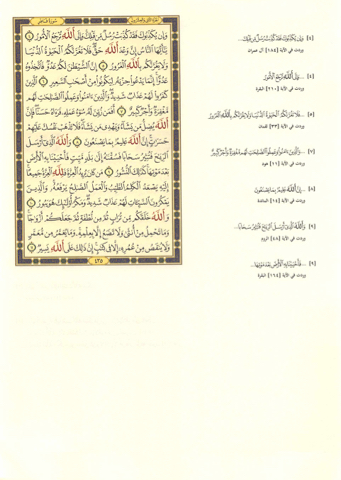 سورة فاطر
الجزء الثاني والعشرون
وَإِن يُكَذِّبُوكَ فَقَدْ كُذِّبَتْ رُسُلٌ مِّن قَبْلِكَ وَإِلَى اللَّهِ تُرْجَعُ الْأُمُورُ ٤
يَا أَيُّهَا النَّاسُ إِنَّ وَعْدَ اللَّهِ حَقٌّ فَلَا تَغُرَّنَّكُمُ الْحَيَاةُ الدُّنْيَا
وَلَا يَغُرَّنَّكُم بِاللَّهِ الْغَرُورُ ٥ إِنَّ الشَّيْطَانَ لَكُمْ عَدُوٌّ فَاتَّخِذُوهُ
عَدُوًّا إِنَّمَا يَدْعُو حِزْبَهُ لِيَكُونُوا مِنْ أَصْحَابِ السَّعِيرِ ٦ الَّذِينَ
كَفَرُوا لَهُمْ عَذَابٌ شَدِيدٌ وَالَّذِينَ آمَنُوا وَعَمِلُوا الصَّالِحَاتِ لَهُم
مَّغْفِرَةٌ وَأَجْرٌ كَبِيرٌ ٧ أَفَمَن زُيِّنَ لَهُ سُوءُ عَمَلِهِ فَرَآهُ حَسَنًا فَإِنَّ
اللَّهَ يُضِلُّ مَن يَشَاءُ وَيَهْدِي مَن يَشَاءُ فَلَا تَذْهَبْ نَفْسُكَ عَلَيْهِمْ
حَسَرَاتٍ إِنَّ اللَّهَ عَلِيمٌ بِمَا يَصْنَعُونَ ٨ وَاللَّهُ الَّذِي أَرْسَلَ
الرِّيَاحَ فَتُثِيرُ سَحَابًا فَسُقْنَاهُ إِلَى بَلَدٍ مَّيِّتٍ فَأَحْيَيْنَا بِهِ الْأَرْضَ
بَعْدَ مَوْتِهَا كَذَلِكَ النُّشُورُ ٩ مَن كَانَ يُرِيدُ الْعِزَّةَ فَلِلَّهِ الْعِزَّةُ جَمِيعًا
إِلَيْهِ يَصْعَدُ الْكَلِمُ الطَّيِّبُ وَالْعَمَلُ الصَّالِحُ يَرْفَعُهُ وَالَّذِينَ
يَمْكُرُونَ السَّيِّئَاتِ لَهُمْ عَذَابٌ شَدِيدٌ وَمَكْرُ أُولَئِكَ هُوَ يَبُورُ ١٠
وَاللَّهُ خَلَقَكُم مِّن تُرَابٍ ثُمَّ مِن نُّطْفَةٍ ثُمَّ جَعَلَكُمْ أَزْوَاجًا
وَمَا تَحْمِلُ مِنْ أُنثَى وَلَا تَضَعُ إِلَّا بِعِلْمِهِ وَمَا يُعَمَّرُ مِن مُّعَمَّرٍ
وَلَا يُنقَصُ مِنْ عُمُرِهِ إِلَّا فِي كِتَابٍ إِنَّ ذَلِكَ عَلَى اللَّهِ يَسِيرٌ ١١
٤٣٥
[٤] وَإِن يُكَذِّبُوكَ فَقَدْ كُذِّبَتْ رُسُلٌ مِّن قَبْلِكَ...
وردت في الآية [١٨٤] آل عمران
[٤] ...وَإِلَى اللَّهِ تُرْجَعُ الْأُمُورُ
وردت في الآية [٢١٠] البقرة
[٥] ...فَلَا تَغُرَّنَّكُمُ الْحَيَاةُ الدُّنْيَا وَلَا يَغُرَّنَّكُم بِاللَّهِ الْغَرُورُ
وردت في الآية [٣٣] لقمان
[٧] ...وَالَّذِينَ آمَنُوا وَعَمِلُوا الصَّالِحَاتِ لَهُم مَّغْفِرَةٌ وَأَجْرٌ كَبِيرٌ
وردت في الآية [١١] هود
[٨] ...إِنَّ اللَّهَ عَلِيمٌ بِمَا يَصْنَعُونَ
وردت في الآية
[٩] وَاللَّهُ الَّذِي أَرْسَلَ الرِّيَاحَ فَتُثِيرُ سَحَابًا...
وردت في الآية [٤٨] الروم
[٩] ...فَأَحْيَيْنَا بِهِ الْأَرْضَ بَعْدَ مَوْتِهَا...
وردت في الآية [١٦٤] البقرة